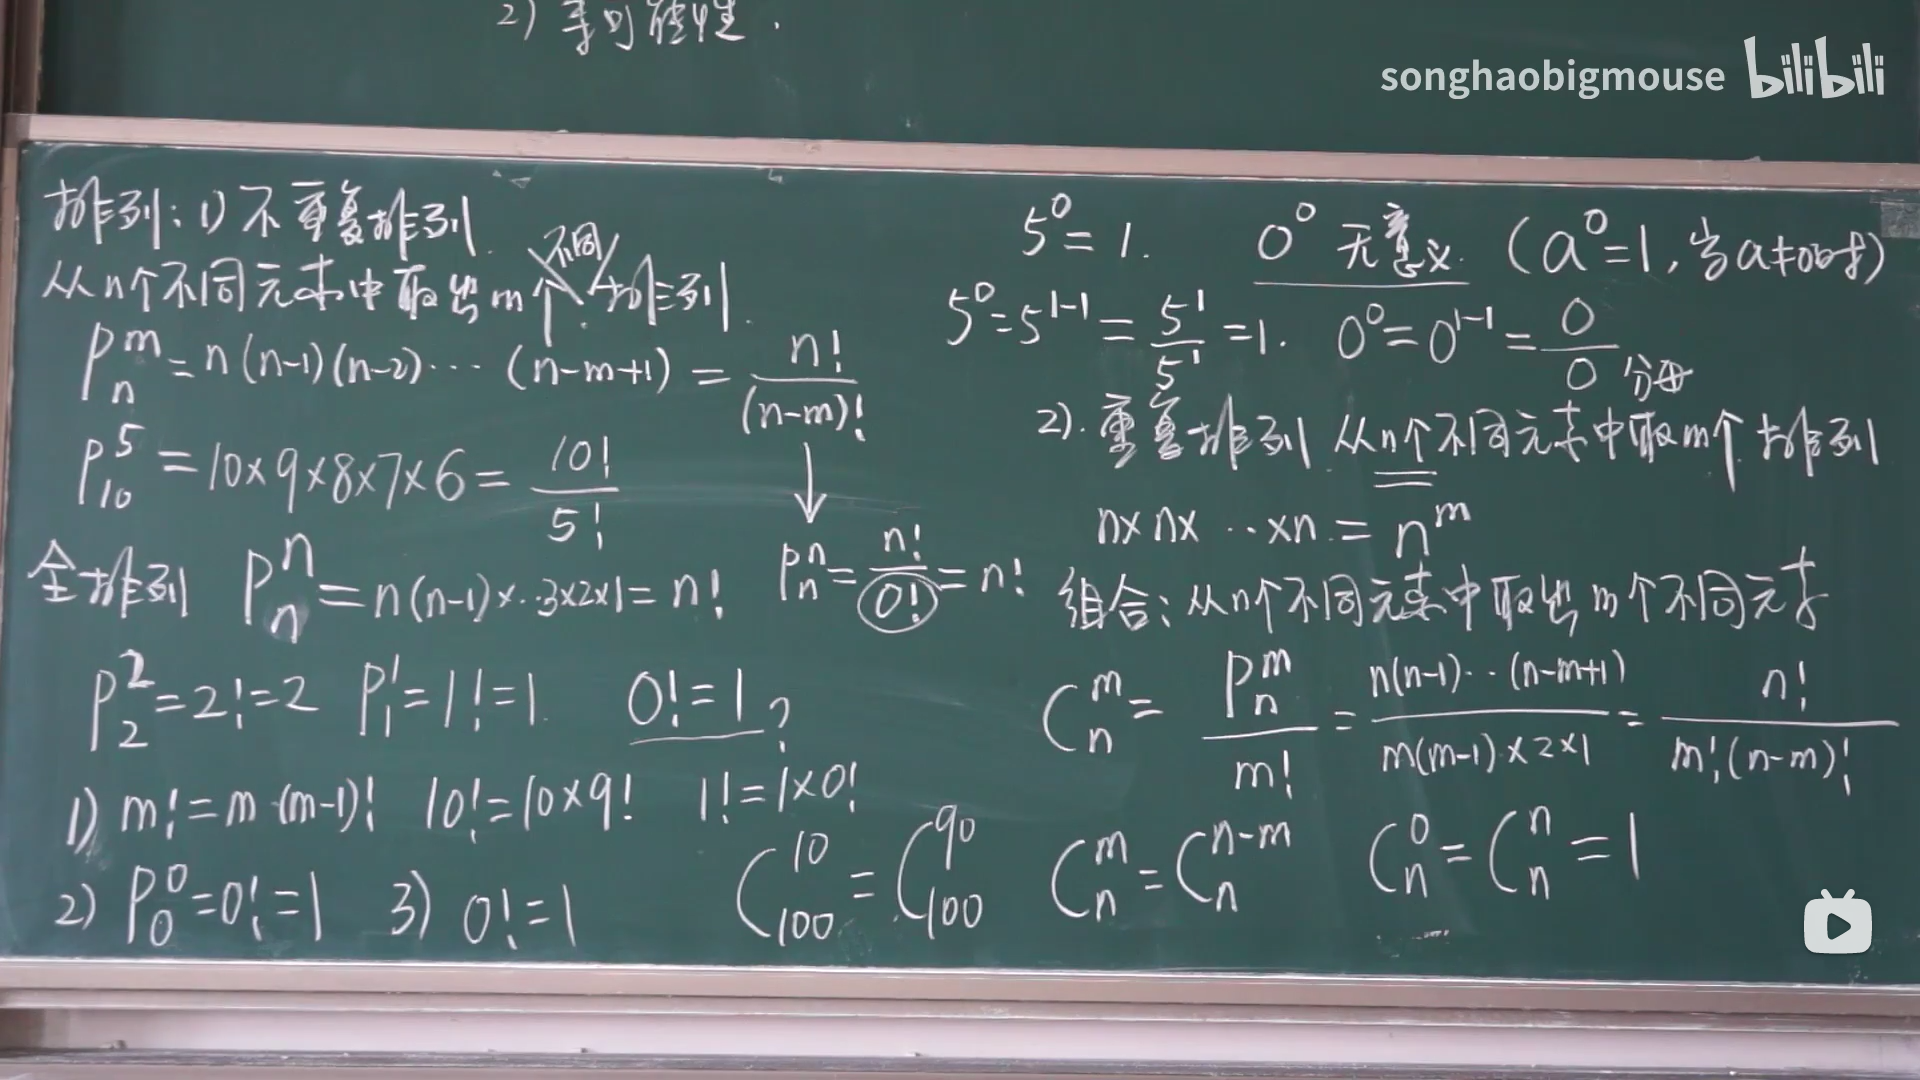 2) 等可能性.
songhaobigmouse bilibili
排列: 1) 不重复排列.
从n个不同元素中取出m个不同排列.
P_n^m = n(n-1)(n-2)··· (n-m+1) = n!/(n-m)!
P_10^5 = 10×9×8×7×6 = 10!/5!
全排列 P_n^n = n(n-1)×··3×2×1 = n! P_n^n = n!/0! = n!
P_2^2 = 2! = 2 P_1^1 = 1! = 1. 0! = 1 ?
1) m! = m·(m-1)! 10! = 10×9! 1! = 1×0!
2) P_0^0 = 0! = 1 3) 0! = 1
5^0 = 1. 0^0 无意义. (a^0 = 1, 当a≠0时)
5^0 = 5^{1-1} = 5^1/5^1 = 1. 0^0 = 0^{1-1} = 0/0 分母
2). 重复排列 从n个不同元素中取m个排列
n×n× ··×n = n^m
组合: 从n个不同元素中取出m个不同元素
C_n^m = P_n^m/m! = n(n-1)··(n-m+1)/m(m-1)·×2×1 = n!/m!(n-m)!
C_100^10 = C_100^90 C_n^m = C_n^{n-m} C_n^0 = C_n^n = 1